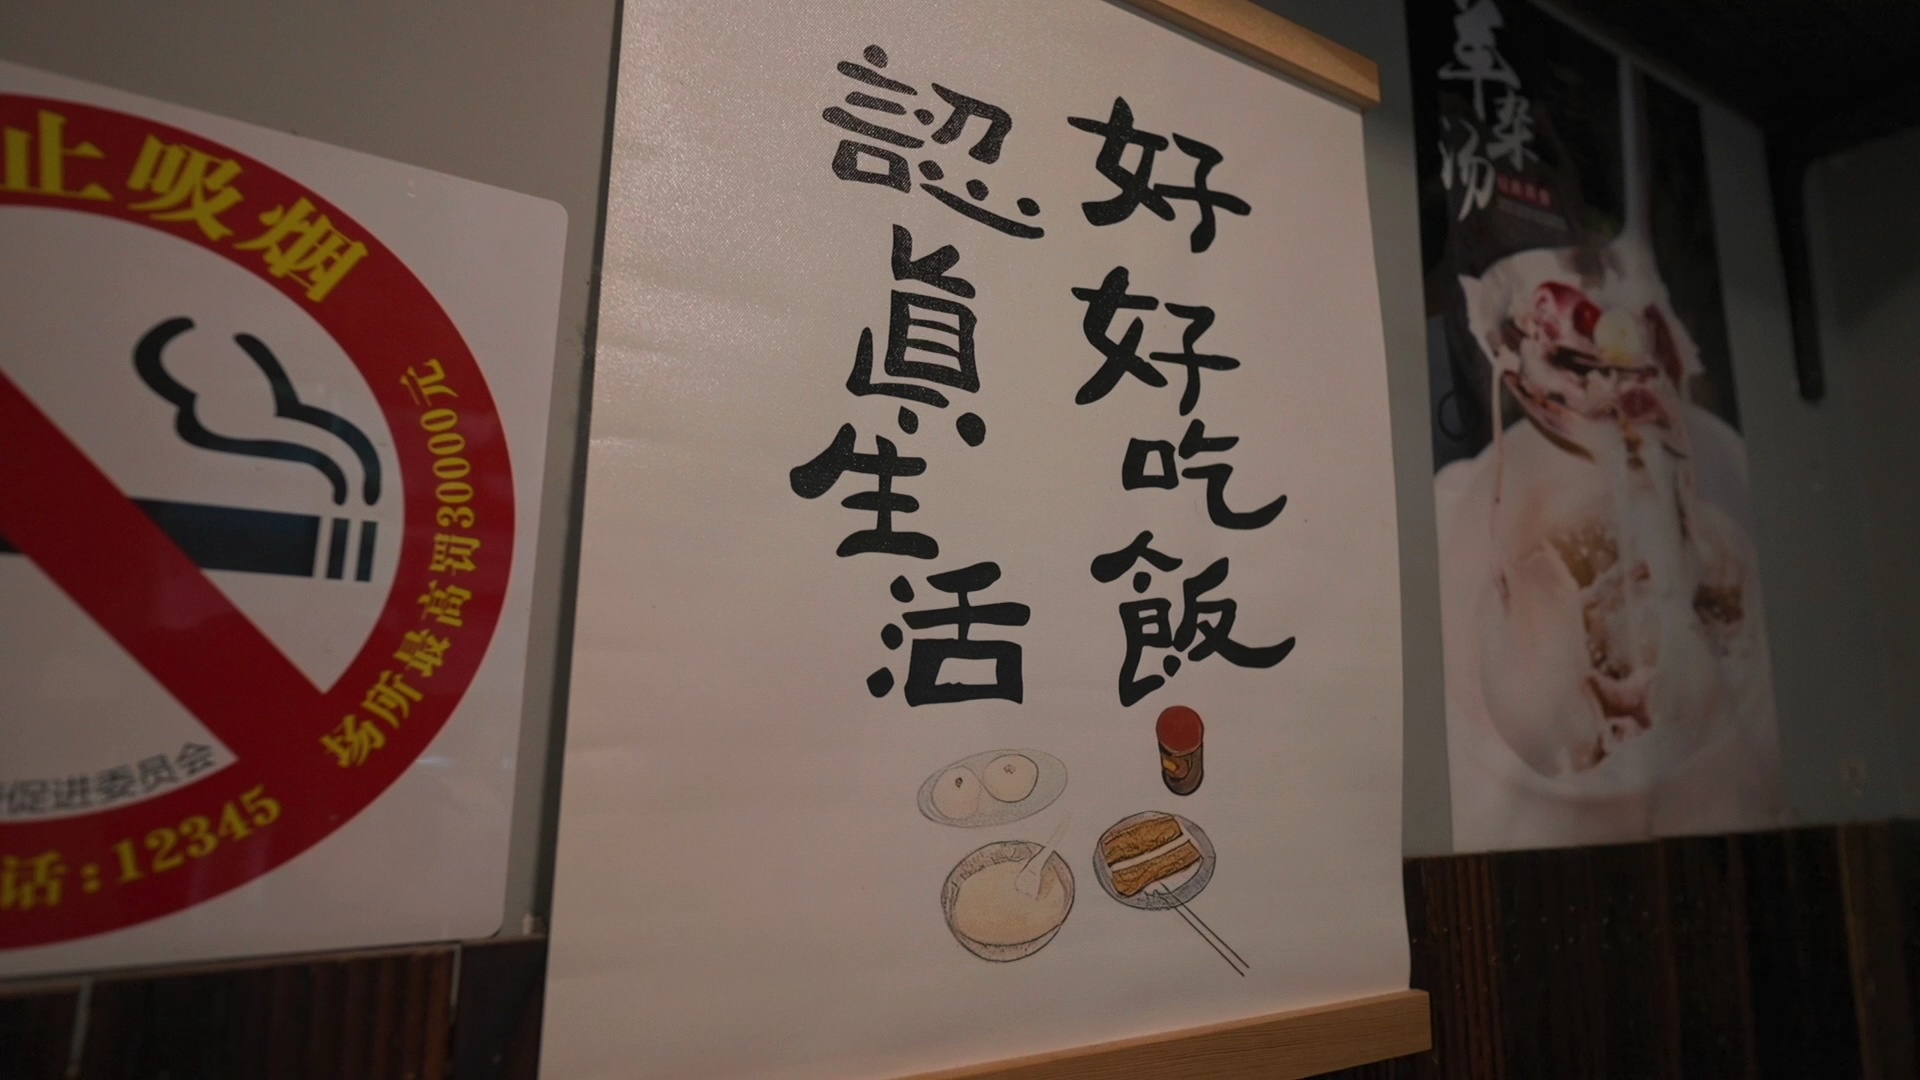 止吸烟
场所最高罚30000元
促进委员会
话:12345
好好吃飯
認眞生活
羊杂汤